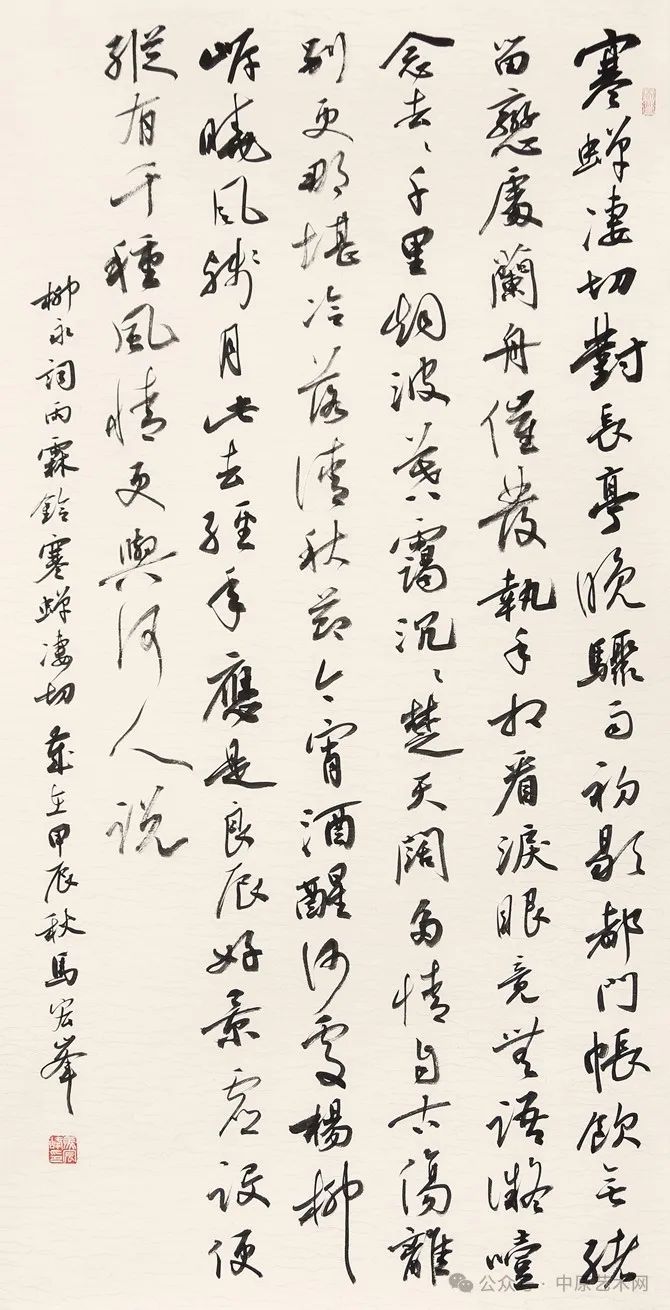 寒蟬凄切對長亭晚驟雨初歇都門帳飲無緒
留戀處蘭舟催發執手相看淚眼竟無語凝噎
念去々千里烟波暮靄沉々楚天闊多情自古傷離
別更那堪冷落清秋節今宵酒醒何處楊柳
岸曉風殘月此去經年應是良辰好景虛設便
縱有千種風情更與何人說
柳永詞雨霖鈴寒蟬凄切歲在甲辰秋馬宏峰
公众号·中原艺术网